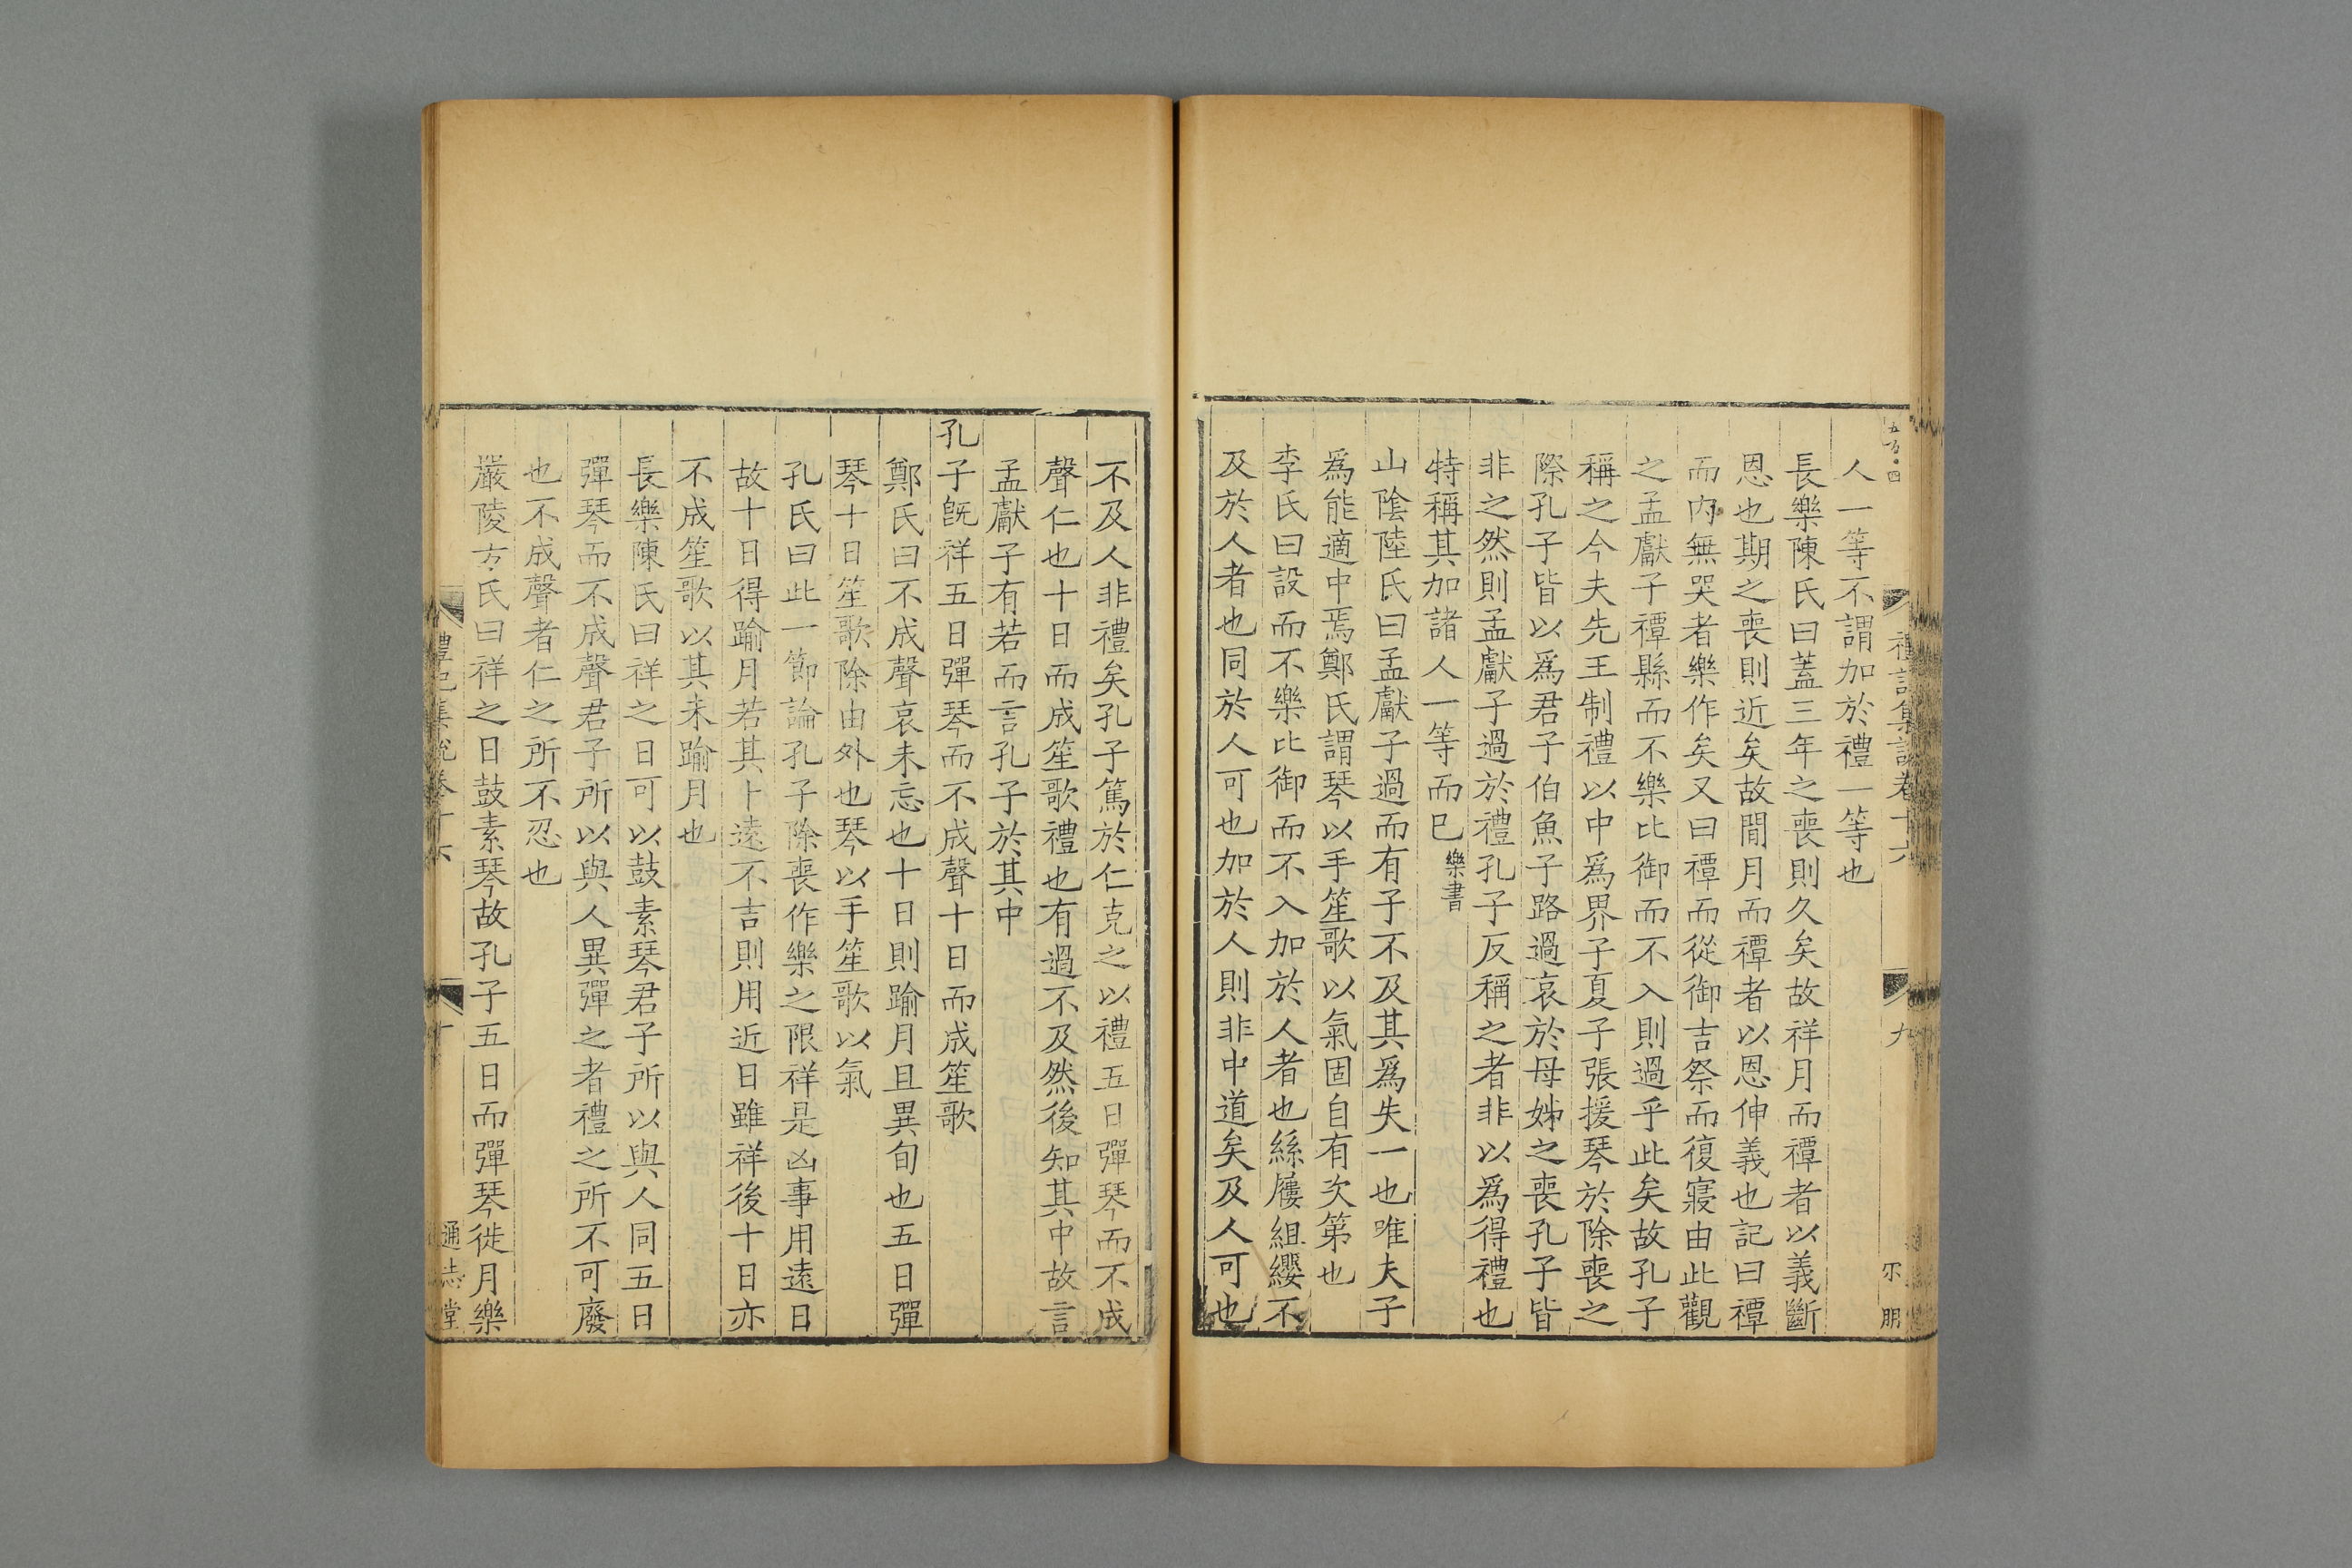 五百〇四
禮記集說卷十六
九
尔朋
人一等不謂加於禮一等也
長樂陳氏曰蓋三年之喪則久矣故祥月而禫者以義斷
恩也期之喪則近矣故閒月而禫者以恩伸義也記曰禫
而內無哭者樂作矣又曰禫而從御吉祭而復寢由此觀
之孟獻子禫縣而不樂比御而不入則過乎此矣故孔子
稱之今夫先王制禮以中爲界子夏子張援琴於除喪之
際孔子皆以爲君子伯魚子路過哀於母姊之喪孔子皆
非之然則孟獻子過於禮孔子反稱之者非以爲得禮也
特稱其加諸人一等而已樂書
山陰陸氏曰孟獻子過而有子不及其爲失一也唯夫子
爲能適中焉鄭氏謂琴以手笙歌以氣固自有次第也
李氏曰設而不樂比御而不入加於人者也絲屨組纓不
及於人者也同於人可也加於人則非中道矣及人可也
不及人非禮矣孔子篤於仁克之以禮五日彈琴而不成
聲仁也十日而成笙歌禮也有過不及然後知其中故言
孟獻子有若而言孔子於其中
孔子旣祥五日彈琴而不成聲十日而成笙歌
鄭氏曰不成聲哀未忘也十日則踰月且異旬也五日彈
琴十日笙歌除由外也琴以手笙歌以氣
孔氏曰此一節論孔子除喪作樂之限祥是凶事用遠日
故十日得踰月若其卜遠不吉則用近日雖祥後十日亦
不成笙歌以其未踰月也
長樂陳氏曰祥之日可以鼓素琴君子所以與人同五日
彈琴而不成聲君子所以與人異彈之者禮之所不可廢
也不成聲者仁之所不忍也
嚴陵方氏曰祥之日鼓素琴故孔子五日而彈琴徙月樂
禮記集說卷十六
十
通志堂